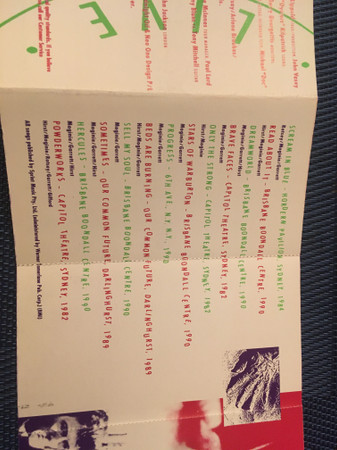 John Vasey
Kilpatrick
Michael "Doc"
Jolene Diblker
Paul Lord
Mitchell
John Jackson
Nee One Design P/L
quality standards. If you believe
our Customer Service
SCREAM IN BLUE - HORDERN PAVILION SYDNEY, 1984
Rotsey/Moginie/Garrett
READ ABOUT IT - BRISBANE BOONDALL CENTRE, 1990
Hirst/Moginie/Garrett
DREAMWORLD - BRISBANE BOONDALL CENTRE, 1990
Hirst/Moginie/Garrett
BRAVE FACES - CAPITOL THEATRE, SYDNEY, 1982
Moginie/Garrett
ONLY THE STRONG - CAPITOL THEATRE SYDNEY, 1982
Hirst/Moginie
STARS OF WARBURTON - BRISBANE BOONDALL CENTRE, 1990
Moginie/Garrett
PROGRESS - 6TH AVE. N.Y. N.Y., 1990
Moginie/Garrett
BEDS ARE BURNING - OUR COMMON FUTURE, DARLINGHURST, 1989
Hirst/Moginie/Garrett
SELL MY SOUL - BRISBANE BOONDALL CENTRE, 1990
Moginie/Garrett
SOMETIMES - OUR COMMON FUTURE DARLINGHURST, 1989
Hirst/Moginie/Garrett
HERCULES - BRISBANE BOONDALL CENTRE, 1990
Moginie/Garrett/Hirst
POWDERWORKS - CAPITOL THEATRE, SYDNEY, 1982
Hirst/Moginie/Rotsey/Garrett/Gifford
All songs published by Sprint Music Pty. Ltd. Administered by Warner Tamerlane Pub. Corp. (BMI)